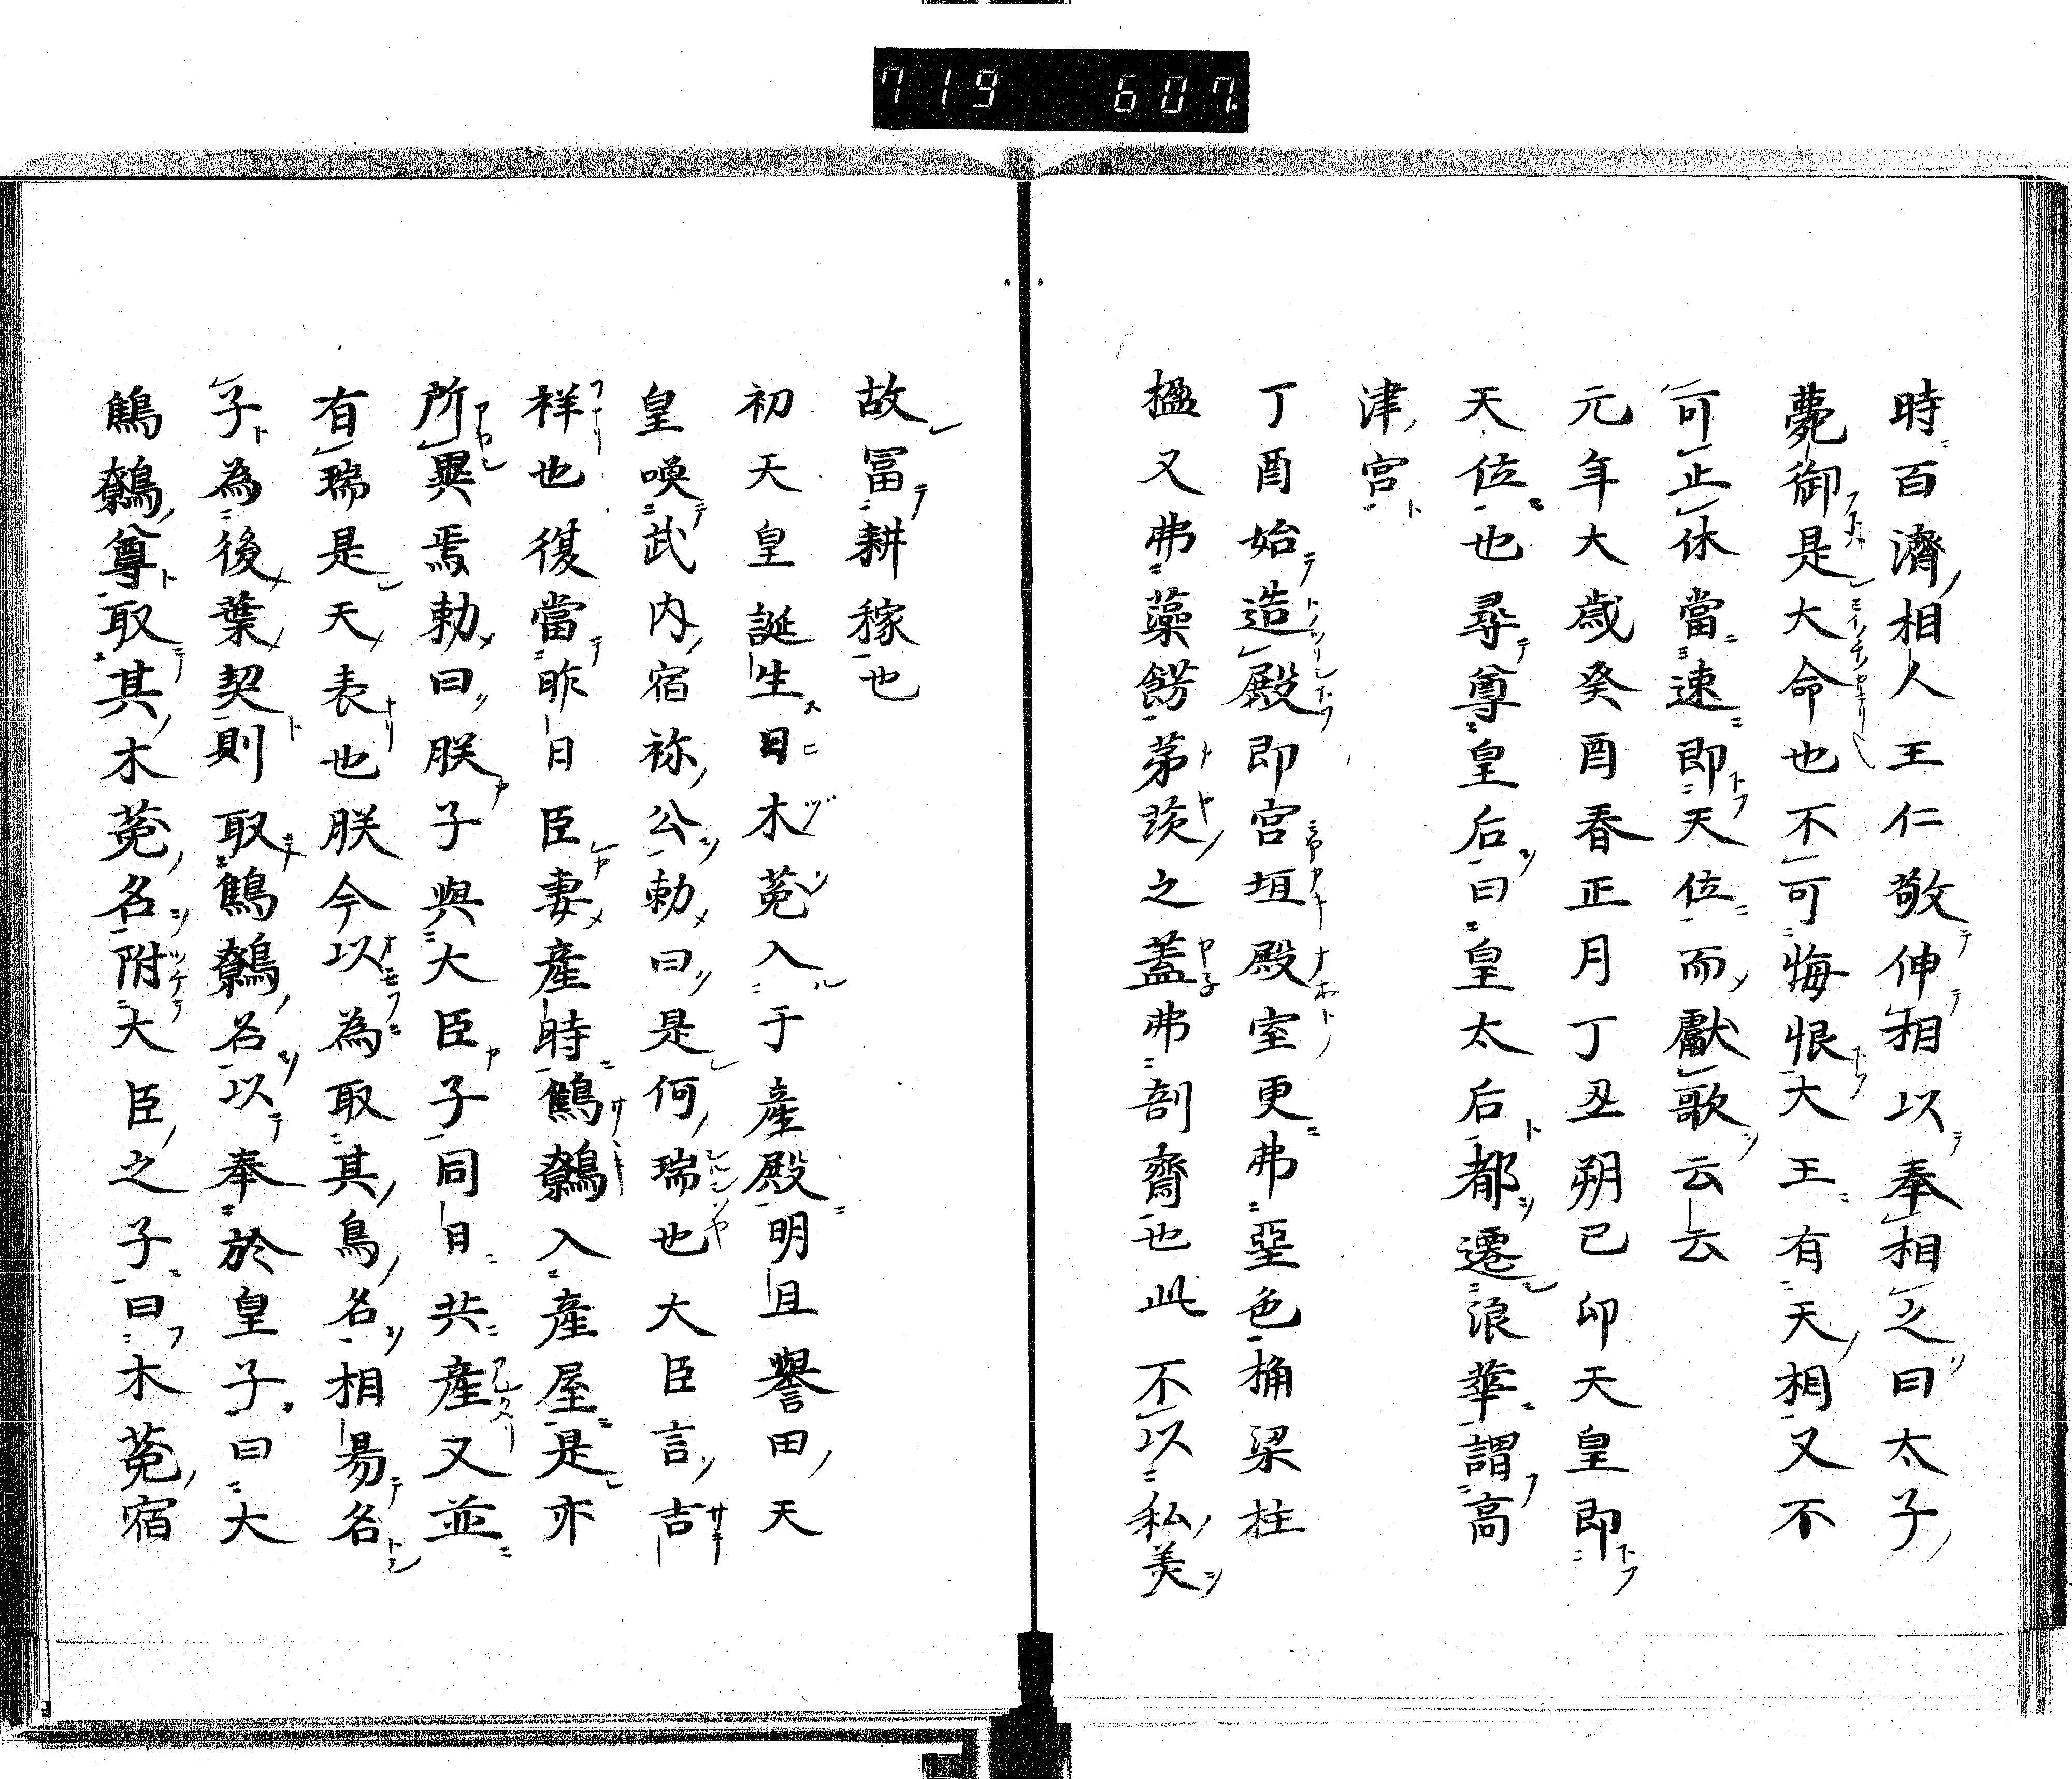 719 607.
時百濟相人王仁敬伸相以奉相之曰太子
薨御是大命也不可悔恨大王有天相又不
可止休當速即天位而獻歌云云
元年大歳癸酉春正月丁丑朔己卯天皇即
天位也尋尊皇后曰皇太后都遷浪華謂高
津宮
丁酉始造殿即宮垣殿室更弗堊色桷梁柱
楹又弗藻餝茅茨之蓋弗剖齊也此不以私美
故冨耕稼也
初天皇誕生日木菟入于産殿明旦譽田天
皇喚武内宿祢公勅曰是何瑞也大臣言吉
祥也復當昨日臣妻産時鷦鷯入産屋是亦
所異焉勅曰朕子與大臣子同日共産又並
有瑞是天表也朕今以為取其鳥名相昜名
子為後葉契則取鷦鷯名以奉於皇子曰大
鷦鷯尊取其木菟名附大臣之子曰木菟宿